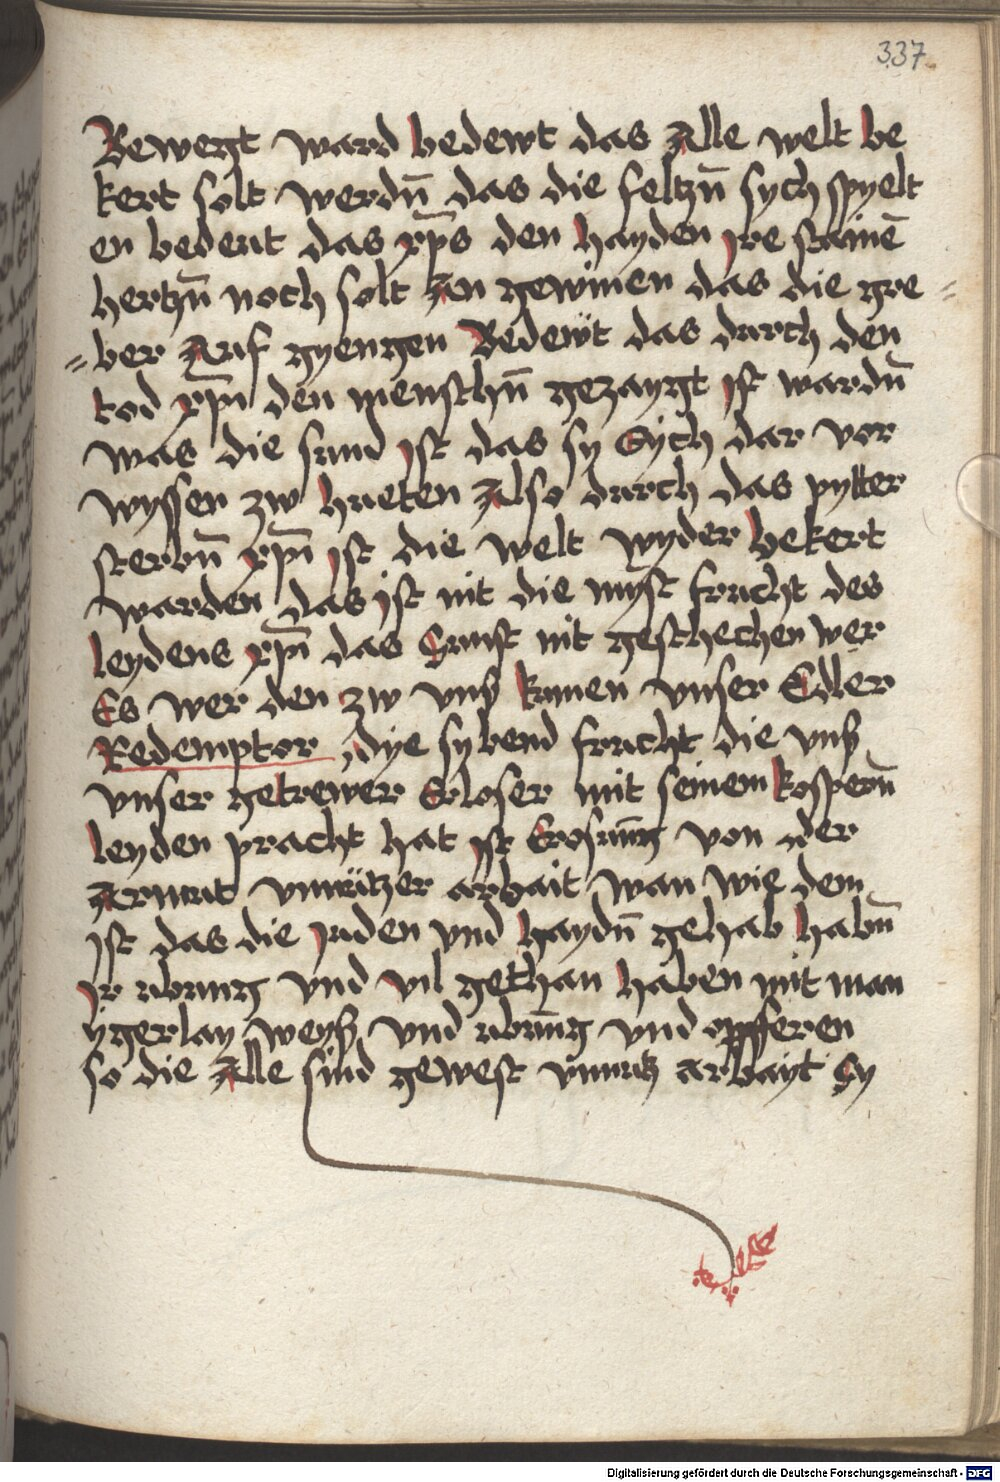 337
Bewegt ward bedewt das Alle welt be
kert solt werdn̄ das die feltzn̄ sych spyelt
en bedeut das xp̄s den hayden Ire stainē
hertzn̄ noch solt An gewinen das die gre =
= ber Auf gyengen Bedewt das durch den
tod xp̄i den menschn̄ gezaygt Ist wardn̄
was die sund Ist das sy Sych dar vor
wyssen zw hueten Also durch das pytter
sterbn̄ xp̄i Ist die welt wyder bekert
warden das ist nit die mynst frucht des
leydens xp̄i das Sunst nit geschechen wer
Es wer den zw vnß kumen vnser Edler
Redemptor , dye sybend frucht die vnß
vnser getrewer Erloser mit seinem kospern̄
leyden pracht hat ist Erosung von der
Armut vnnützer arbait wan wie dem
ist das die Juden vnd haydn̄ gehab habn̄
Ir vbung vnd vil gethan haben mit man
ygerlay weyß vnd vbung vnd opfferen
so die Alle sind gewest vnnutz arbayt Sy
Digitalisierung gefördert durch die Deutsche Forschungsgemeinschaft - DFG